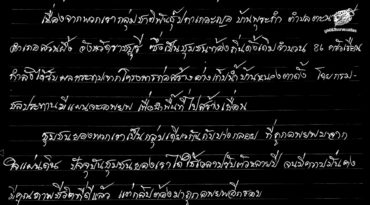 เนื่องจากพวกเรากลุ่มชาติพันธุ์ปกาเกอะญอ บ้านพุระกำ ตำบลตะนาว
อำเภอสวนผึ้ง จังหวัดราชบุรี ซึ่งเป็นชุมชนท้องถิ่นดั้งเดิมจำนวน 86 ครัวเรือน
กำลังได้รับผลกระทบจากโครงการก่อสร้างอ่างเก็บน้ำบ้านหนองตาดั้ง โดยกรม-
ชลประทานมีแผนจะอพยพ เพื่อพื้นที่ไปสร้างเขื่อน
ชุมชนของพวกเราเป็นกลุ่มเดียวกันกับบางกลอย ที่ถูกอพยพมาจาก
ใจแผ่นดิน ปัจจุบันชุมชนของเราได้ใช้เวลาปรับตัวหลายปี จนมีความมั่นคง
มีคุณภาพชีวิตที่ดีแล้ว แต่กลับต้องมาถูกอพยพอีกรอบ